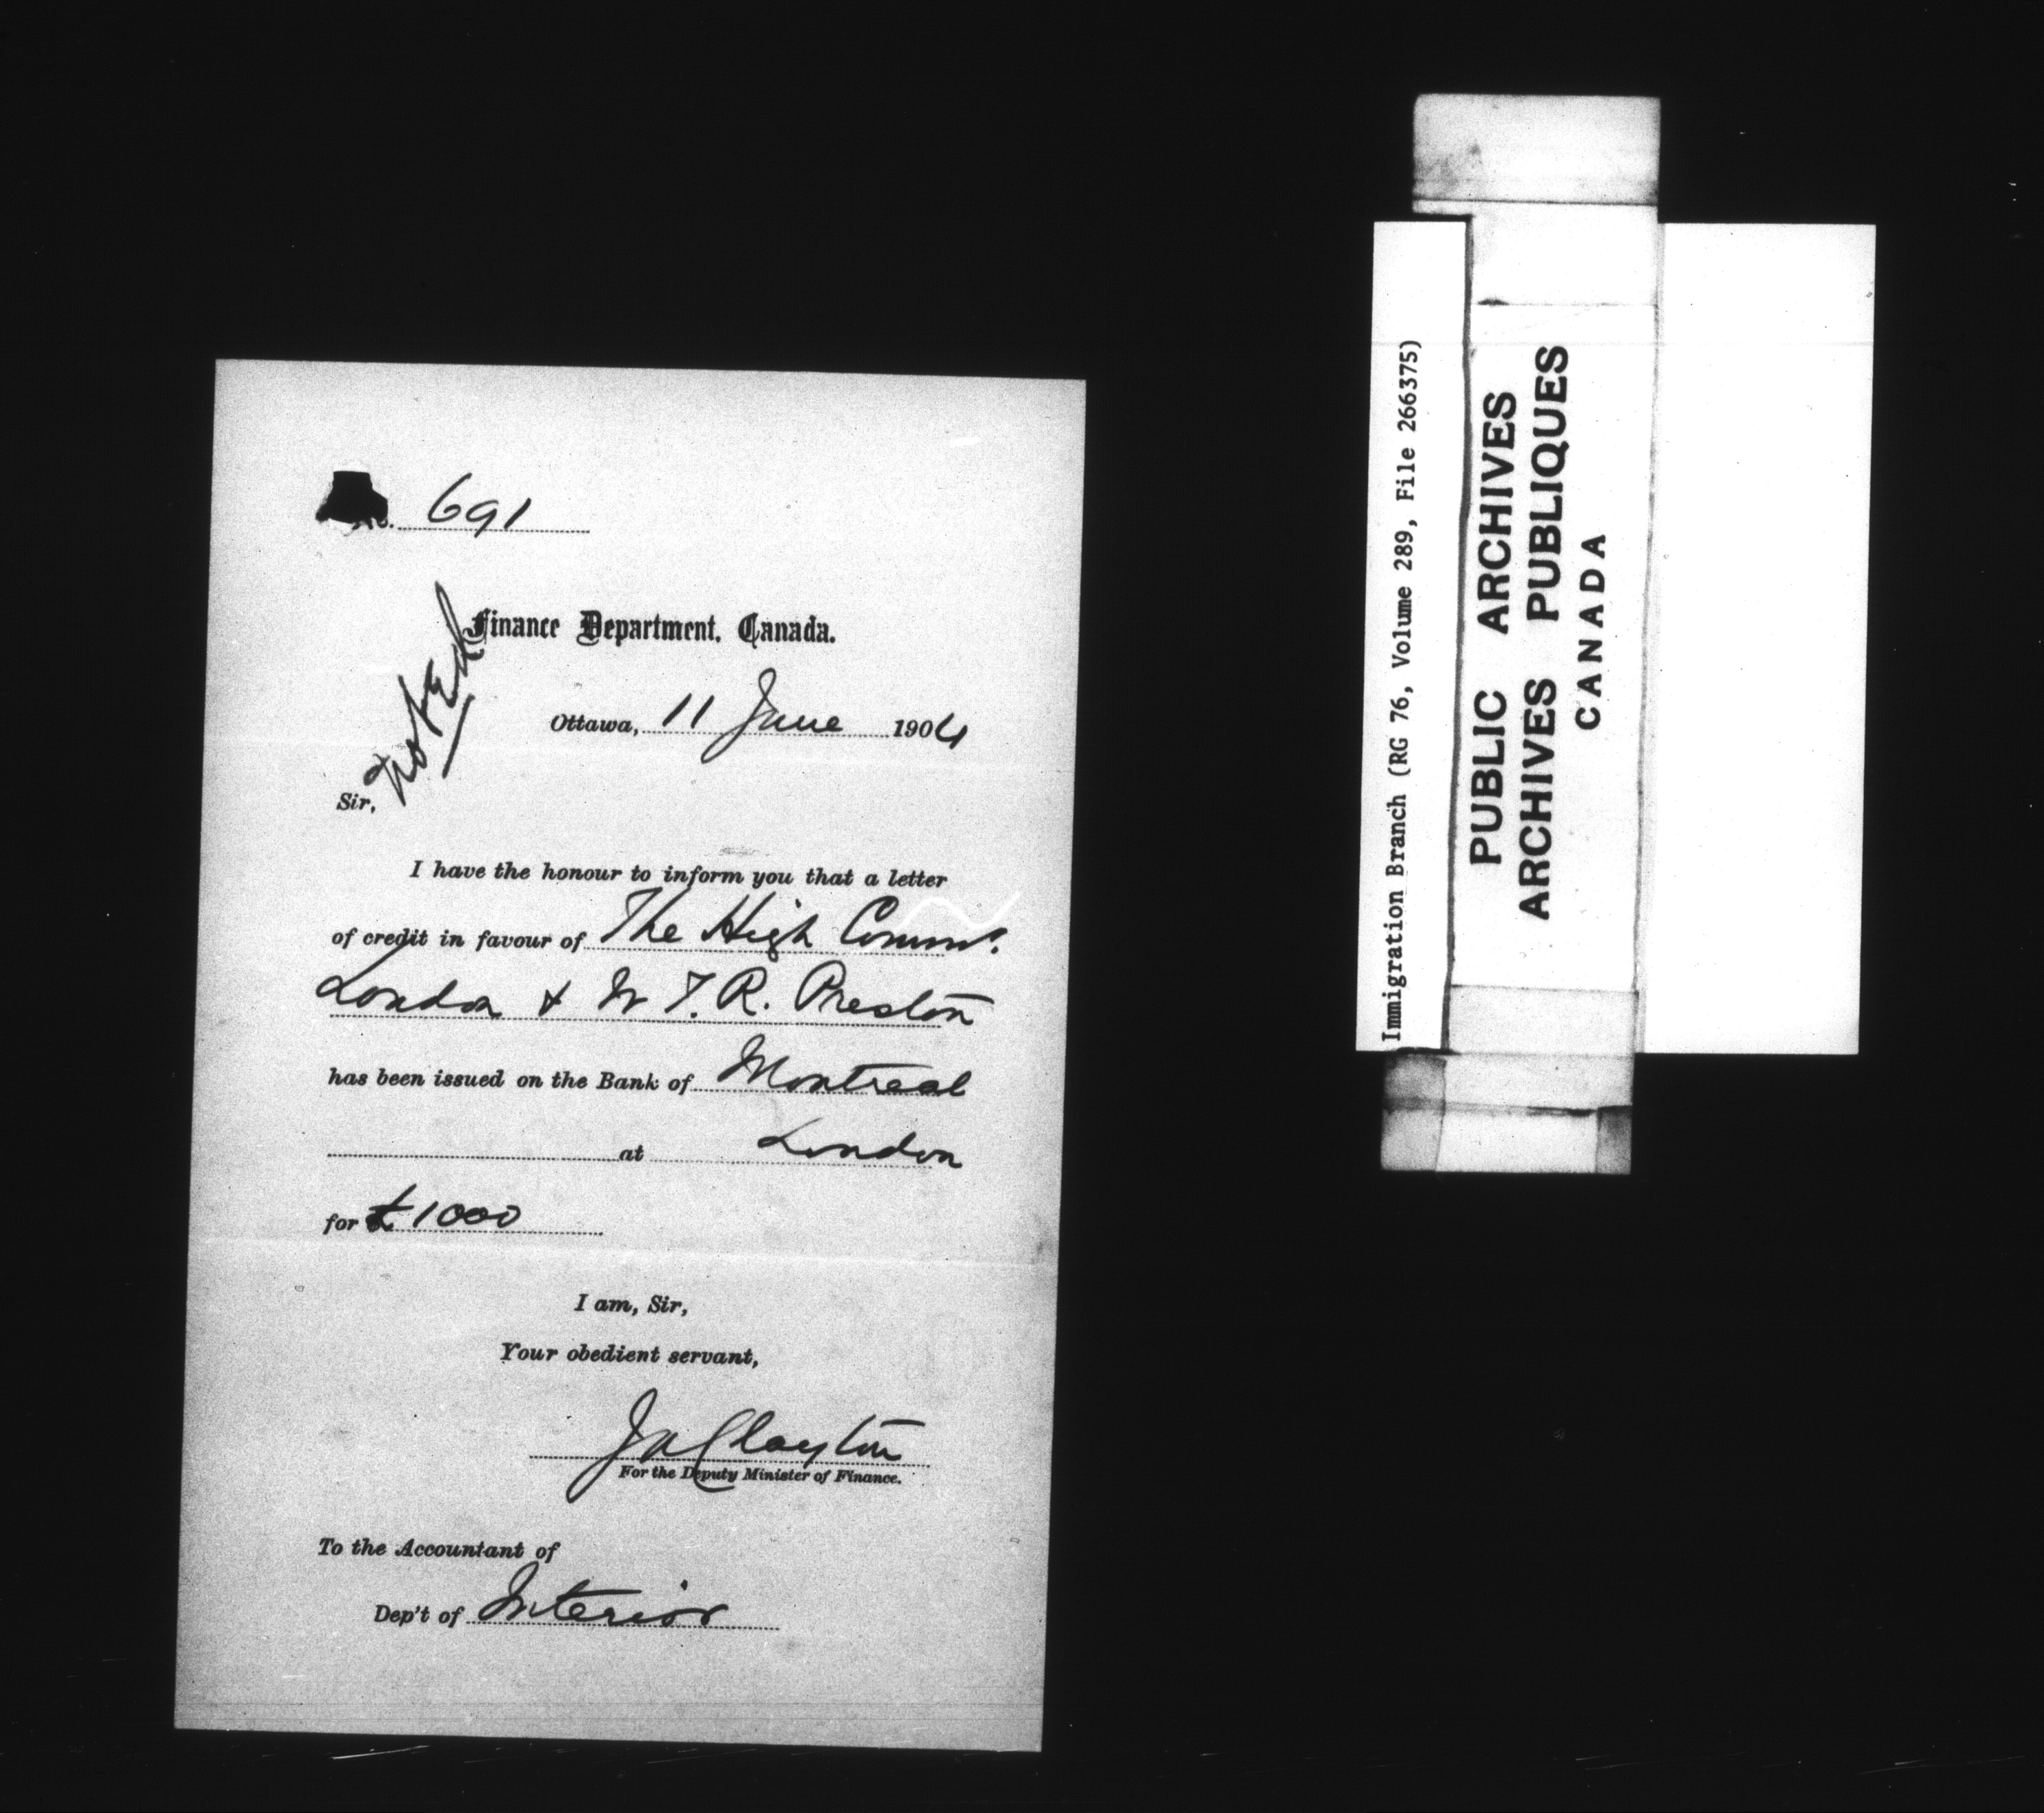 No. 691
Finance Department, Canada.
Noted
Ottawa, 11 June 1904
Sir,
I have the honour to inform you that a letter
of credit in favour of The High Commr.
London & W. T. R. Preston
has been issued on the Bank of Montreal
at London
for £1000
I am, Sir,
Your obedient servant,
J Clayton
For the Deputy Minister of Finance.
To the Accountant of
Dep't of Interior
Immigration Branch (RG 76, Volume 289, File 266375)
PUBLIC ARCHIVES
ARCHIVES PUBLIQUES
CANADA